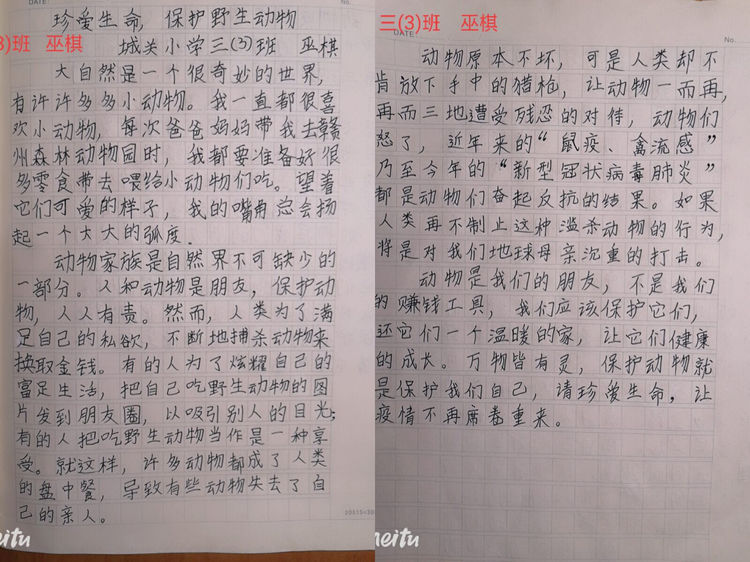 DATE
No.
珍爱生命，保护野生动物
3)班 巫棋
城关小学三(3)班 巫棋
大自然是一个很奇妙的世界，
有许许多多小动物。我一直都很喜
欢小动物，每次爸爸妈妈带我去赣
州森林动物园时，我都要准备好很
多零食带去喂给小动物们吃。望着
它们可爱的样子，我的嘴角总会扬
起一个大大的弧度。
动物家族是自然界不可缺少的
一部分。人和动物是朋友，保护动
物，人人有责。然而，人类为了满
足自己的私欲，不断地捕杀动物来
换取金钱。有的人为了炫耀自己的
富足生活，把自己吃野生动物的图
片发到朋友圈，以吸引别人的目光；
有的人把吃野生动物当作是一种享
受。就这样，许多动物都成了人类
的盘中餐，导致有些动物失去了自
己的亲人。
meitu
三(3)班 巫棋
DATE
No.
动物原本不坏，可是人类却不
肯放下手中的猎枪，让动物一而再，
再而三地遭受残忍的对待，动物们
怒了，近年来的“鼠疫、禽流感”
乃至今年的“新型冠状病毒肺炎”
都是动物们奋起反抗的结果。如果
人类再不制止这种滥杀动物的行为，
将是对我们地球母亲沉重的打击。
动物是我们的朋友，不是我们
的赚钱工具，我们应该保护它们，
还它们一个温暖的家，让它们健康
的成长。万物皆有灵，保护动物就
是保护我们自己，请珍爱生命，让
疫情不再席卷重来。
meitu